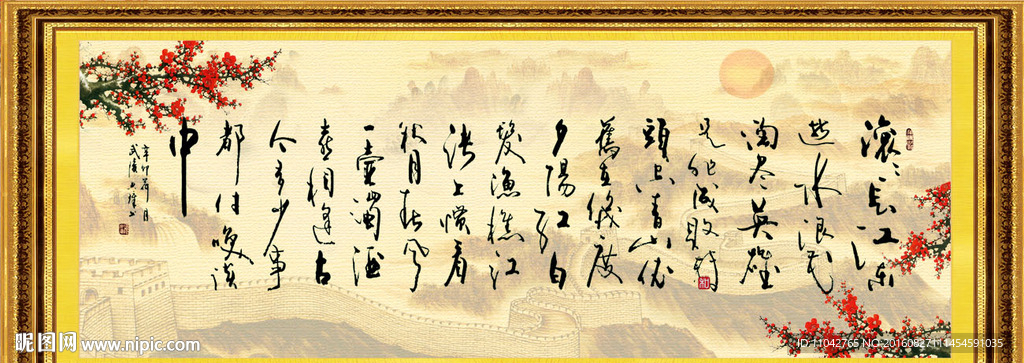 滚〻长江东
逝水浪花
淘尽英雄
是非成败转
头空青山依
舊在幾度
夕陽红白
髮漁樵江
渚上惯看
秋月春风
一壺濁酒
喜相逢古
今多少事
都付笑谈
中
辛卯荷月
昵图网 www.nipic.com
ID:11042765 NO:20160827111454591035